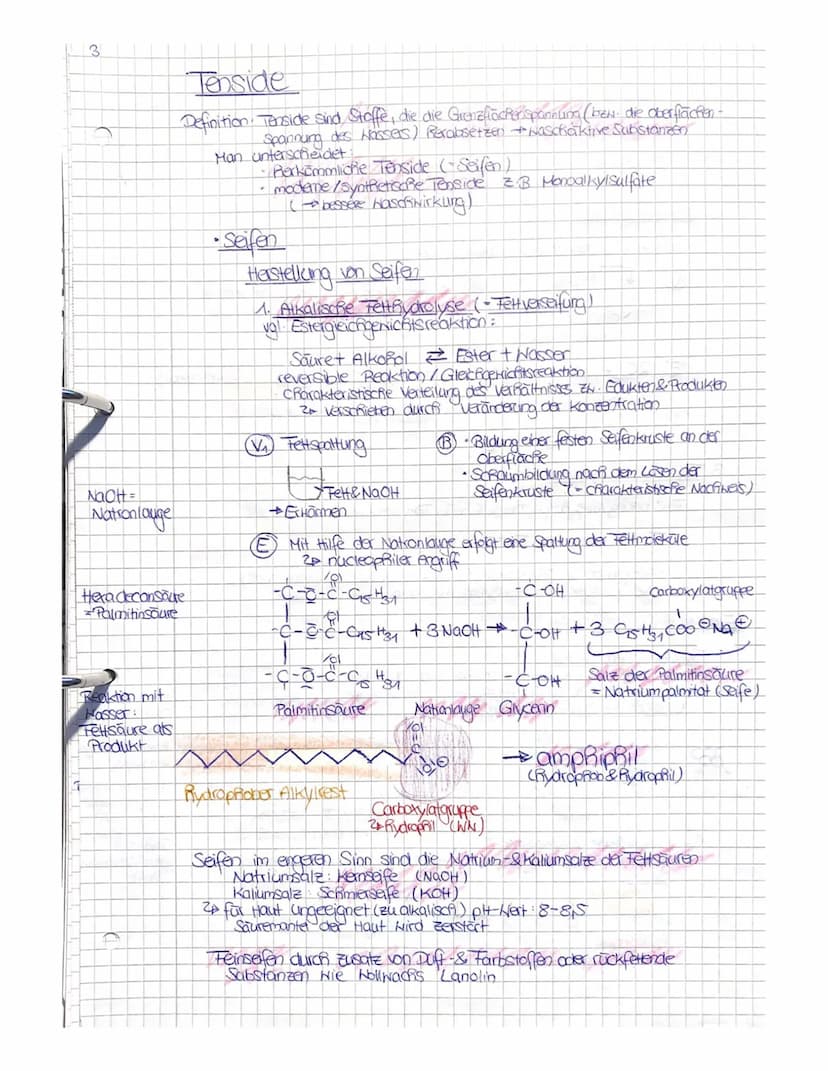 3
Tenside
Definition: Tenside sind Stoffe, die die Grenzflächenspannung (bzw. die oberflächen-
spannung des Wassers) herabsetzen → waschaktive Substanzen
Man unterscheidet:
· herkömmliche Tenside (= Seifen)
· moderne/synthetische Tenside z.B Monoalkylsulfate
(→ bessere Waschwirkung)
· Seifen
Herstellung von Seifen
1. Alkalische Fetthydrolyse (= Fettverseifung)
vgl. Estergleichgewichtsreaktion:
Säure + Alkohol ⇄ Ester + Wasser
reversible Reaktion / Gleichgewichtsreaktion
charakteristische Verteilung des Verhältnisses zw. Edukten & Produkten
↳ verschieben durch Veränderung der Konzentration
V1 Fettspaltung
Fett & NaOH
→ Erwärmen
B · Bildung einer festen Seifenkruste an der
Oberfläche
· Schaumbildung nach dem Lösen der
Seifenkruste (= charakteristische Nachweis)
NaOH =
Natronlauge
E Mit Hilfe der Natronlauge erfolgt eine Spaltung der Fettmoleküle
↳ nucleophiler Angriff
Hexadecansäure
= Palmitinsäure
|O|
-C-O-C-C15H31
|O|
-C-O-C-C15H31 + 3 NaOH →
|O|
-C-O-C-C15H31
-C-OH
-C-OH + 3 C15H31COO⊖Na⊕
-C-OH
Carboxylatgruppe
Salz der Palmitinsäure
= Natriumpalmitat (Seife)
Palmitinsäure Natronlauge Glycerin
Reaktion mit
Wasser:
Fettsäure als
Produkt
|O|
C
|O|⊖
→ amphiphil
(hydrophob & hydrophil)
hydrophober Alkylrest
Carboxylatgruppe
↳ hydrophil (WW)
Seifen im engeren Sinn sind die Natrium- & Kaliumsalze der Fettsäuren
Natriumsalz: Kernseife (NaOH)
Kaliumsalz: Schmierseife (KOH)
↳ für Haut ungeeignet (zu alkalisch) pH-Wert: 8-8,5
Säuremantel der Haut wird zerstört
Feinseifen durch Zusatz von Duft- & Farbstoffen oder rückfettende
Substanzen wie Wollwachs Lanolin